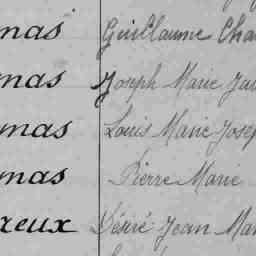 mas Guillaume Cha
mas Joseph Marie Ja
mas Louis Marie Josep
mas Pierre Marie
reux Désiré Jean Mar